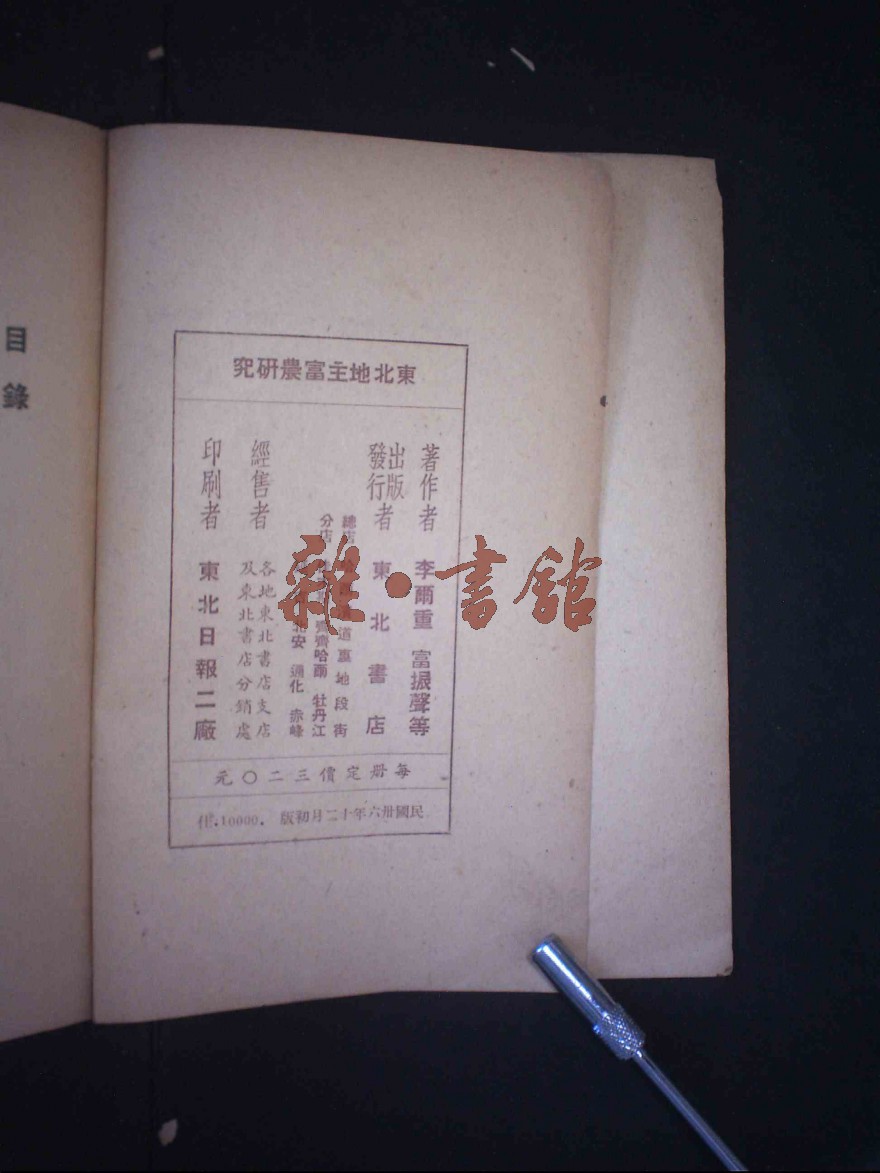 目錄
東北地主富農研究
著作者 李爾重 富振聲等
出版發行者 東北書店
總店 道裏地段街
分店 齊齊哈爾 牡丹江
北安 通化 赤峰
經售者 各地東北書店支店
及東北書店分銷處
印刷者 東北日報二廠
每册定價三二〇元
民國卅六年十二月初版 .10000.
雜·書舘